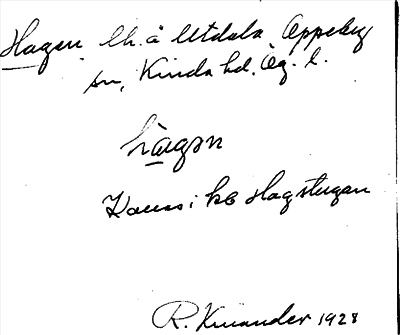 Hagen lh. å Utdala Oppeby
sn, Kinda hd. Ög. l.
hɑ̀gən
Kallas i kb Hagstugan
R. Kinander 1928